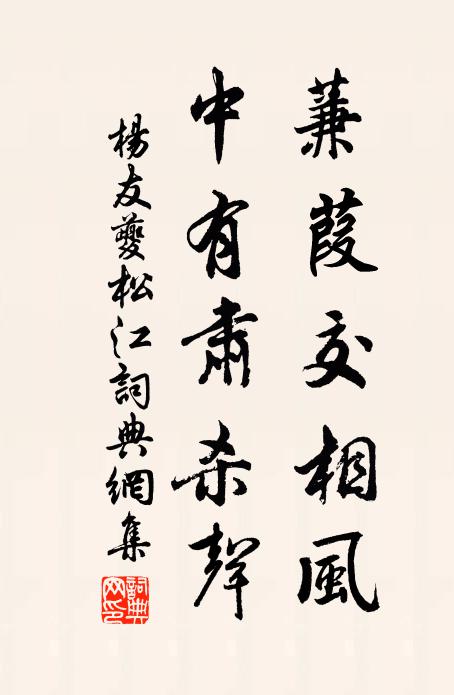 蒹葭交相風
中有肅殺聲
楊友夔松江詞典網集
詞典网印